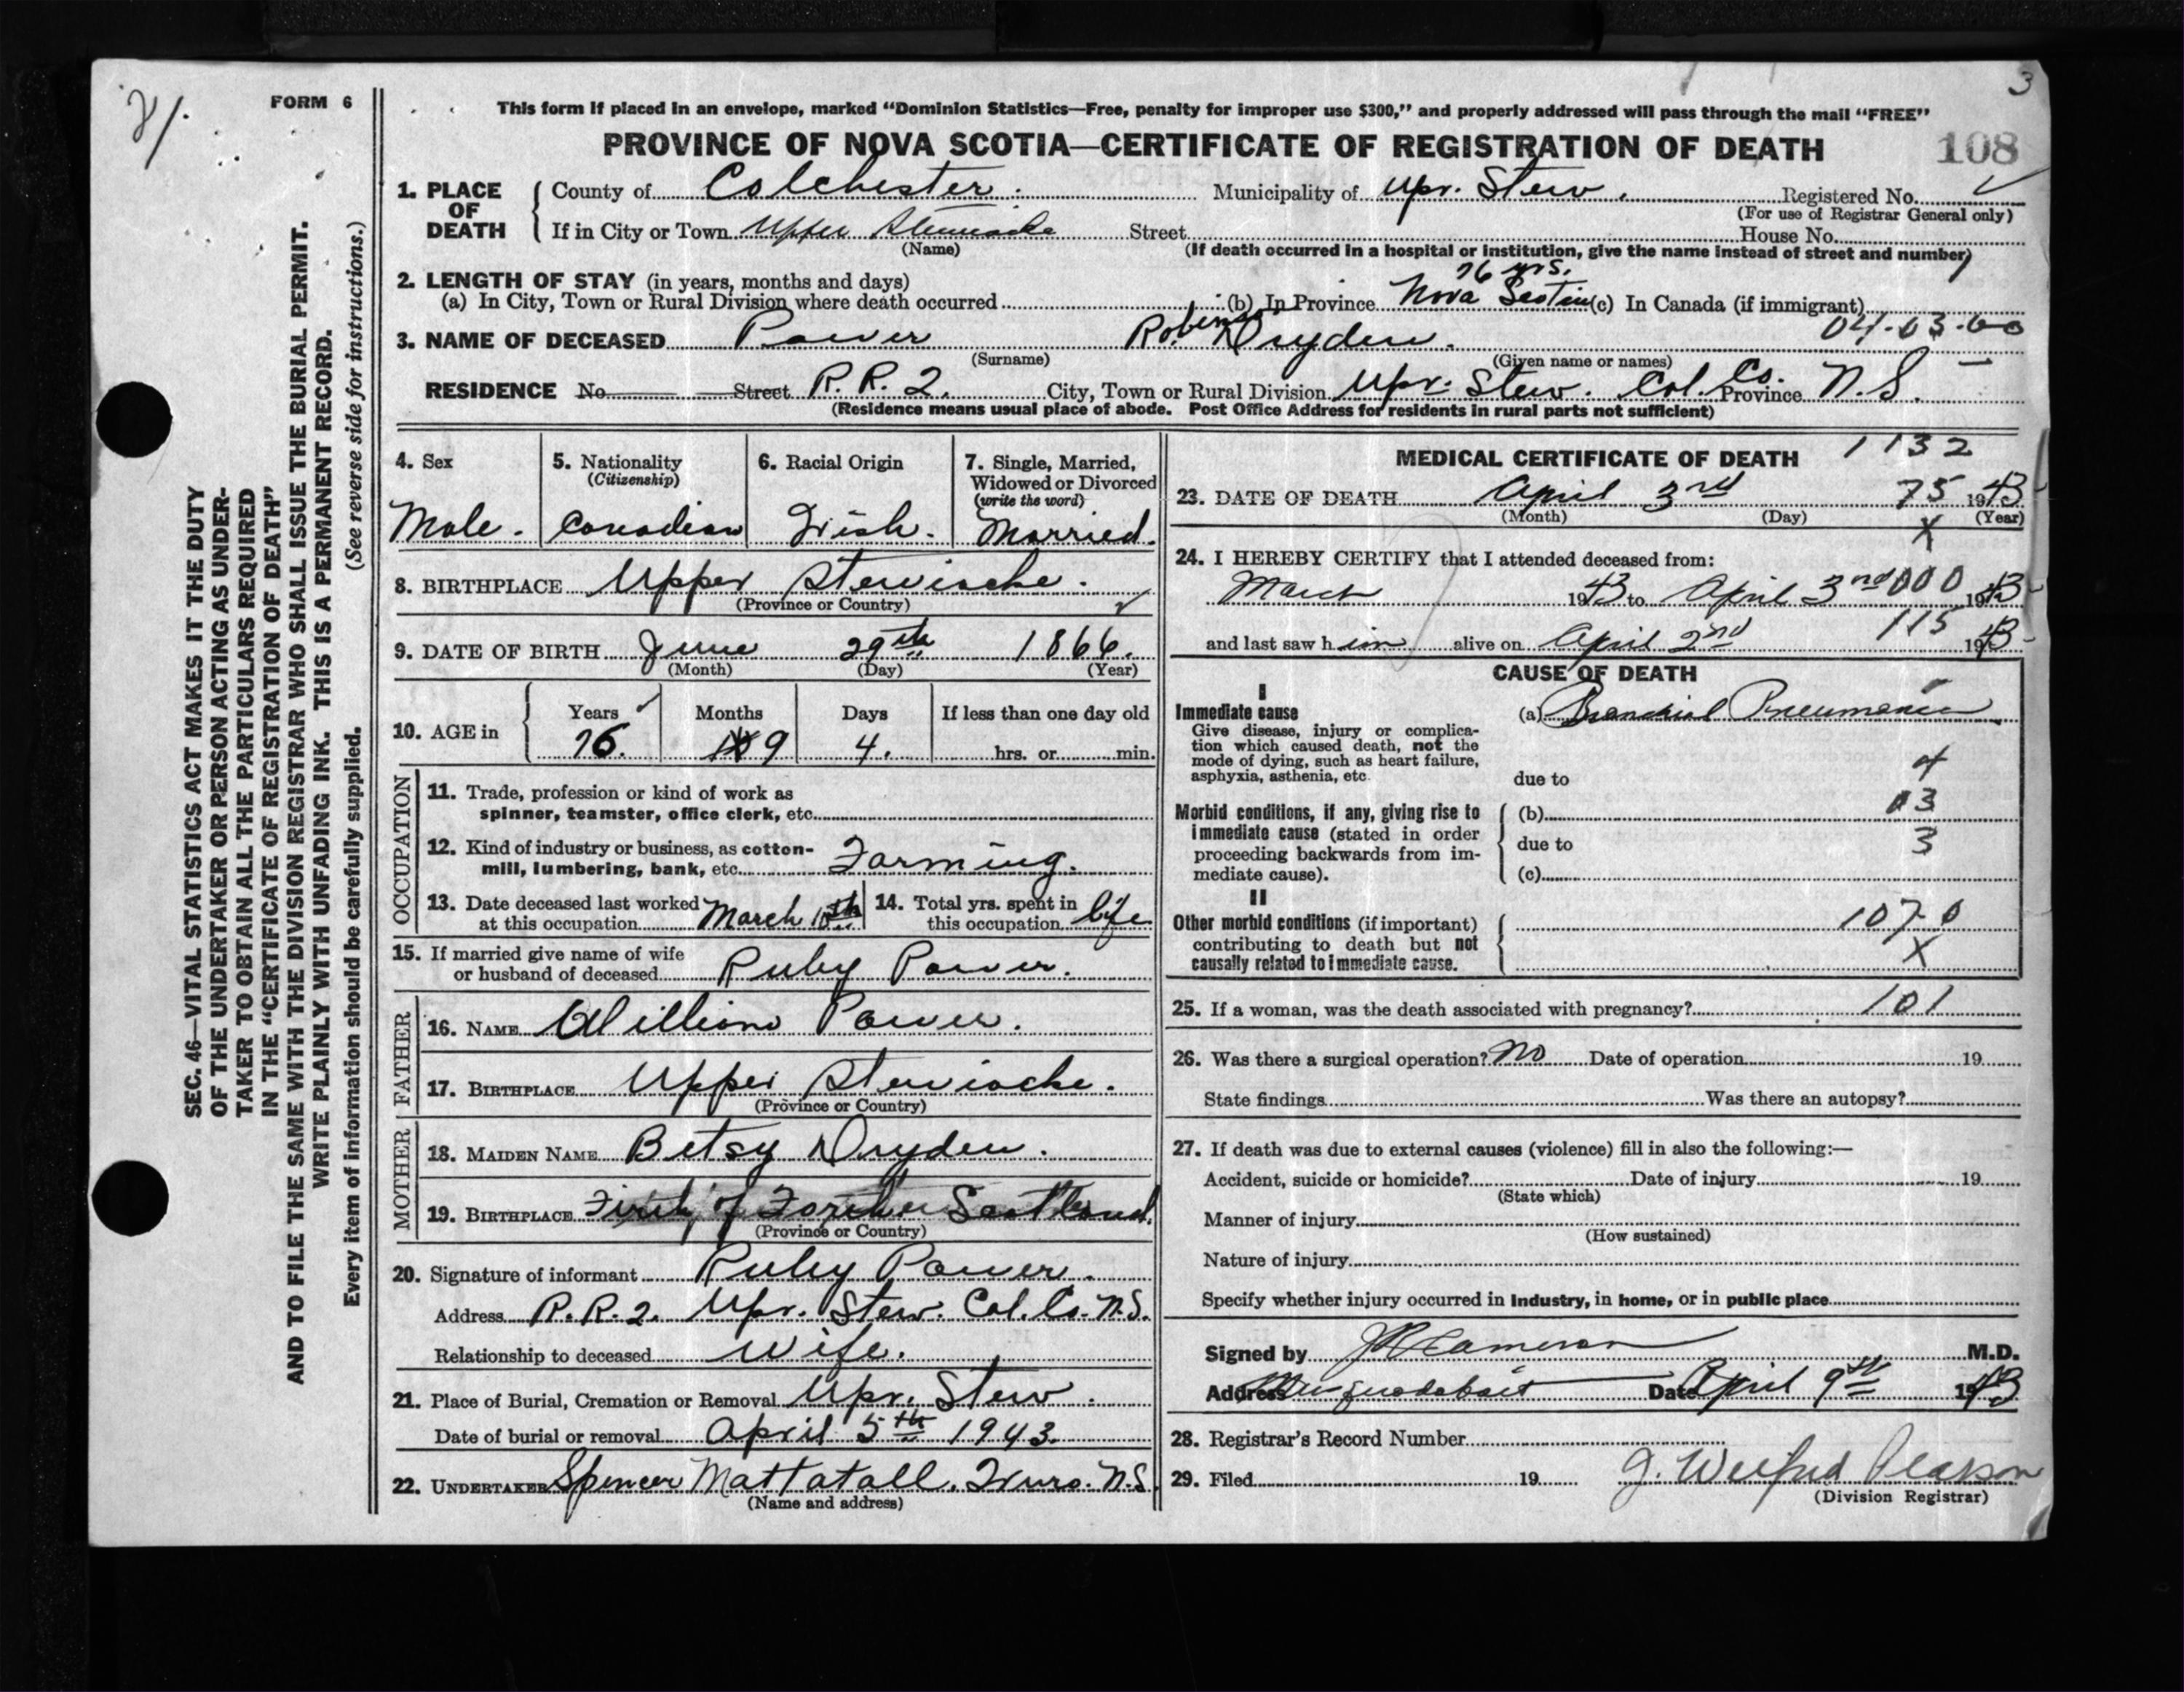 3
21.
FORM 6
This form if placed in an envelope, marked “Dominion Statistics—Free, penalty for improper use $300,” and properly addressed will pass through the mail “FREE”
PROVINCE OF NOVA SCOTIA—CERTIFICATE OF REGISTRATION OF DEATH 108
1. PLACE OF DEATH County of Colchester. Municipality of Upr. Stew. Registered No.
(For use of Registrar General only)
If in City or Town Upper Stewiacke Street House No.
(Name) (If death occurred in a hospital or institution, give the name instead of street and number)
2. LENGTH OF STAY (in years, months and days) 76 yrs.
(a) In City, Town or Rural Division where death occurred (b) In Province Nova Scotia (c) In Canada (if immigrant)
04-03-60
3. NAME OF DECEASED Power Robinson Dryden.
(Surname) (Given name or names)
RESIDENCE No. Street R. R. 2. City, Town or Rural Division Upr. Stew. Col. Co. Province N.S.
(Residence means usual place of abode. Post Office Address for residents in rural parts not sufficient)
4. Sex 5. Nationality (Citizenship) 6. Racial Origin 7. Single, Married, Widowed or Divorced (write the word)
Male. Canadian Irish. Married.
8. BIRTHPLACE Upper Stewiacke.
(Province or Country)
9. DATE OF BIRTH June 29th 1866.
(Month) (Day) (Year)
10. AGE in Years Months Days If less than one day old
76. 9 4. hrs. or min.
OCCUPATION
11. Trade, profession or kind of work as
spinner, teamster, office clerk, etc.
12. Kind of industry or business, as cotton-
mill, lumbering, bank, etc. Farming.
13. Date deceased last worked at this occupation March 10th 14. Total yrs. spent in this occupation life
15. If married give name of wife
or husband of deceased Ruby Power.
FATHER
16. NAME William Power.
17. BIRTHPLACE Upper Stewiacke.
(Province or Country)
MOTHER
18. MAIDEN NAME Betsy Dryden.
19. BIRTHPLACE Firth of Forth Scotland.
(Province or Country)
20. Signature of informant Ruby Power.
Address R. R. 2. Upr. Stew. Col. Co. N.S.
Relationship to deceased Wife.
21. Place of Burial, Cremation or Removal Upr. Stew.
Date of burial or removal April 5th 1943.
22. UNDERTAKER Spencer Mattatall, Truro. N.S.
(Name and address)
MEDICAL CERTIFICATE OF DEATH 1132
23. DATE OF DEATH April 3rd 75 1943
(Month) (Day) (Year)
X
24. I HEREBY CERTIFY that I attended deceased from:
March 1943 to April 3rd 000 1943
and last saw him alive on April 2nd 115 1943
CAUSE OF DEATH
I
Immediate cause (a) Bronchial Pneumonia
Give disease, injury or complica-
tion which caused death, not the
mode of dying, such as heart failure,
asphyxia, asthenia, etc. due to 4
Morbid conditions, if any, giving rise to (b) 13
immediate cause (stated in order due to 3
proceeding backwards from im-
mediate cause). (c)
II
Other morbid conditions (if important) 107-0
contributing to death but not
causally related to immediate cause. X
25. If a woman, was the death associated with pregnancy? 101
26. Was there a surgical operation? No Date of operation 19
State findings Was there an autopsy?
27. If death was due to external causes (violence) fill in also the following:—
Accident, suicide or homicide? Date of injury 19
(State which)
Manner of injury
(How sustained)
Nature of injury
Specify whether injury occurred in Industry, in home, or in public place
Signed by Cameron M.D.
Address Musquodoboit Date April 9th 1943
28. Registrar's Record Number
29. Filed 19 J. Wilfred Pearson
(Division Registrar)
SEC. 46—VITAL STATISTICS ACT MAKES IT THE DUTY
OF THE UNDERTAKER OR PERSON ACTING AS UNDER-
TAKER TO OBTAIN ALL THE PARTICULARS REQUIRED
IN THE “CERTIFICATE OF REGISTRATION OF DEATH”
AND TO FILE THE SAME WITH THE DIVISION REGISTRAR WHO SHALL ISSUE THE BURIAL PERMIT.
WRITE PLAINLY WITH UNFADING INK. THIS IS A PERMANENT RECORD.
Every item of information should be carefully supplied. (See reverse side for instructions.)